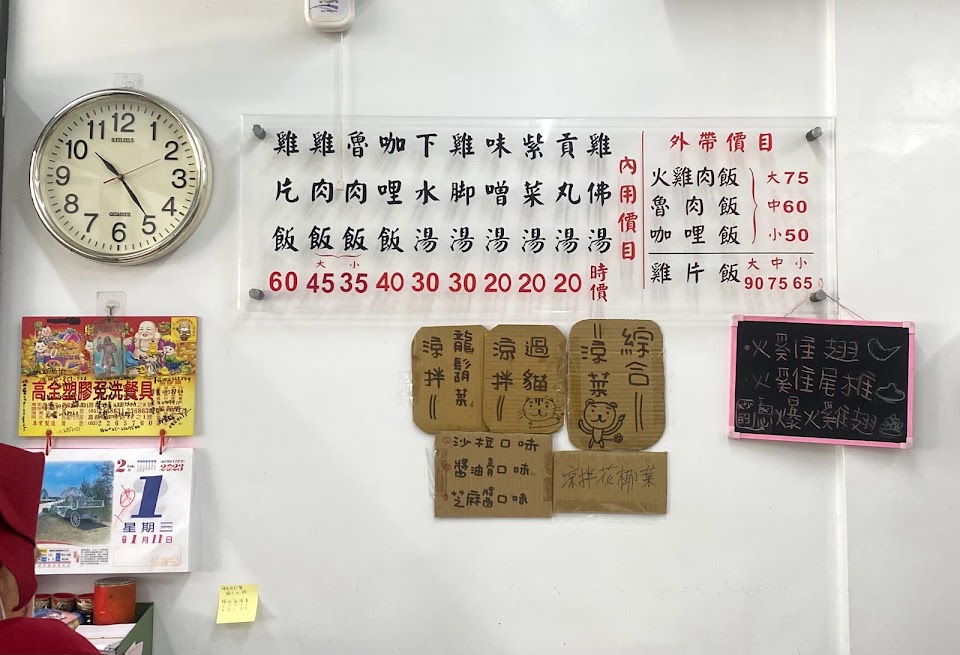 12
11
1
10
2
9
3
8
4
7
5
6
amms
QUARTZ
雞片飯 60
雞肉飯 大 45
魯肉飯 小 35
咖哩飯 40
下水湯 30
雞脚湯 30
味噌湯 20
紫菜湯 20
貢丸湯 20
雞佛湯 時價
內用價目
外帶價目
火雞肉飯 大75
魯肉飯 中60
咖哩飯 小50
雞片飯 大90 中75 小65
龍鬚菜
涼拌
過貓
涼拌
綜合
涼菜
沙拉口味
醬油膏口味
芝麻醬口味
涼拌花椰菜
火雞佳翅
火雞佳尾椎
爆火雞翅
高全塑膠免洗餐具
2 2023
1
星期三
1月11日